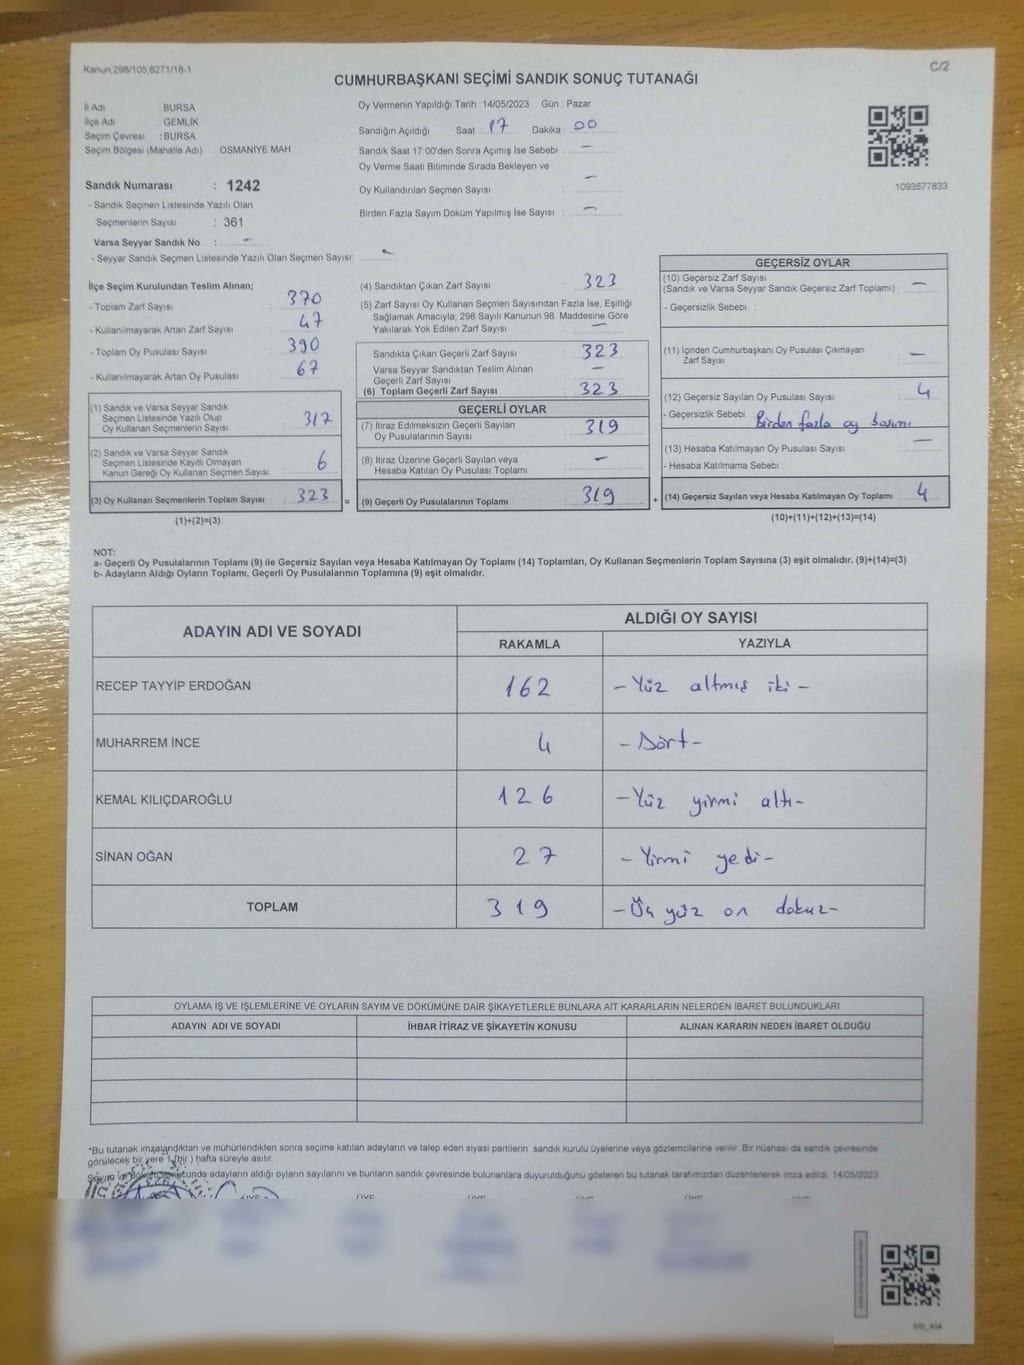 Kanun,298/105,6271/18-1
C/2
CUMHURBAŞKANI SEÇİMİ SANDIK SONUÇ TUTANAĞI
İl Adı : BURSA
İlçe Adı : GEMLİK
Seçim Çevresi : BURSA
Seçim Bölgesi (Mahalle Adı) : OSMANİYE MAH
Sandık Numarası : 1242
- Sandık Seçmen Listesinde Yazılı Olan
Seçmenlerin Sayısı : 361
Varsa Seyyar Sandık No : -
- Seyyar Sandık Seçmen Listesinde Yazılı Olan Seçmen Sayısı: -
Oy Vermenin Yapıldığı Tarih : 14/05/2023 Gün : Pazar
Sandığın Açıldığı Saat : 17 Dakika : 00
Sandık Saat 17:00'den Sonra Açımış İse Sebebi : -
Oy Verme Saati Bitiminde Sırada Bekleyen ve
Oy Kullandırılan Seçmen Sayısı : -
Birden Fazla Sayım Döküm Yapılmış İse Sayısı : -
1093577833
İlçe Seçim Kurulundan Teslim Alınan;
- Toplam Zarf Sayısı : 370
- Kullanılmayarak Artan Zarf Sayısı : 47
- Toplam Oy Pusulası Sayısı : 390
- Kullanılmayarak Artan Oy Pusulası : 67
(1) Sandık ve Varsa Seyyar Sandık
Seçmen Listesinde Yazılı Olup
Oy Kullanan Seçmenlerin Sayısı : 317
(2) Sandık ve Varsa Seyyar Sandık
Seçmen Listesinde Kayıtlı Olmayan
Kanun Gereği Oy Kullanan Seçmen Sayısı : 6
(3) Oy Kullanan Seçmenlerin Toplam Sayısı : 323 =
(1)+(2)=(3)
(4) Sandıktan Çıkan Zarf Sayısı : 323
(5) Zarf Sayısı Oy Kullanan Seçmen Sayısından Fazla İse, Eşitliği
Sağlamak Amacıyla; 298 Sayılı Kanunun 98. Maddesine Göre
Yakılarak Yok Edilen Zarf Sayısı : -
Sandıkta Çıkan Geçerli Zarf Sayısı : 323
Varsa Seyyar Sandıktan Teslim Alınan
Geçerli Zarf Sayısı : -
(6) Toplam Geçerli Zarf Sayısı : 323
GEÇERLİ OYLAR
(7) İtiraz Edilmeksizin Geçerli Sayılan
Oy Pusulalarının Sayısı : 319
(8) İtiraz Üzerine Geçerli Sayılan veya
Hesaba Katılan Oy Pusulası Toplamı : -
(9) Geçerli Oy Pusulalarının Toplamı : 319 +
GEÇERSİZ OYLAR
(10) Geçersiz Zarf Sayısı
(Sandık ve Varsa Seyyar Sandık Geçersiz Zarf Toplamı) : -
- Geçersizlik Sebebi :
(11) İçinden Cumhurbaşkanı Oy Pusulası Çıkmayan
Zarf Sayısı : -
(12) Geçersiz Sayılan Oy Pusulası Sayısı : 4
- Geçersizlik Sebebi : Birden fazla oy basımı
(13) Hesaba Katılmayan Oy Pusulası Sayısı : -
- Hesaba Katılmama Sebebi :
(14) Geçersiz Sayılan veya Hesaba Katılmayan Oy Toplamı : 4
(10)+(11)+(12)+(13)=(14)
NOT:
a- Geçerli Oy Pusulalarının Toplamı (9) ile Geçersiz Sayılan veya Hesaba Katılmayan Oy Toplamı (14) Toplamları, Oy Kullanan Seçmenlerin Toplam Sayısına (3) eşit olmalıdır. (9)+(14)=(3)
b- Adayların Aldığı Oyların Toplamı, Geçerli Oy Pusulalarının Toplamına (9) eşit olmalıdır.
ADAYIN ADI VE SOYADI
ALDIĞI OY SAYISI
RAKAMLA YAZIYLA
RECEP TAYYİP ERDOĞAN 162 -Yüz altmış iki-
MUHARREM İNCE 4 -Dört-
KEMAL KILIÇDAROĞLU 126 -Yüz yirmi altı-
SİNAN OĞAN 27 -Yirmi yedi-
TOPLAM 319 -Üç yüz on dokuz-
OYLAMA İŞ VE İŞLEMLERİNE VE OYLARIN SAYIM VE DÖKÜMÜNE DAİR ŞİKAYETLERLE BUNLARA AİT KARARLARIN NELERDEN İBARET BULUNDUKLARI
ADAYIN ADI VE SOYADI İHBAR İTİRAZ VE ŞİKAYETİN KONUSU ALINAN KARARIN NEDEN İBARET OLDUĞU
*Bu tutanak imzalandıktan ve mühürlendikten sonra seçime katılan adayların ve talep eden siyasi partilerin sandık kurulu üyelerine veya gözlemcilerine verilir. Bir nüshası da sandık çevresinde
görülecek bir yere 1 (bir ) hafta süreyle asılır.
adayların aldığı oyların sayılarını ve bunların sandık çevresinde bulunanlara duyurulduğunu gösteren bu tutanak tarafımızdan düzenlenerek imza edildi. 14/05/2023